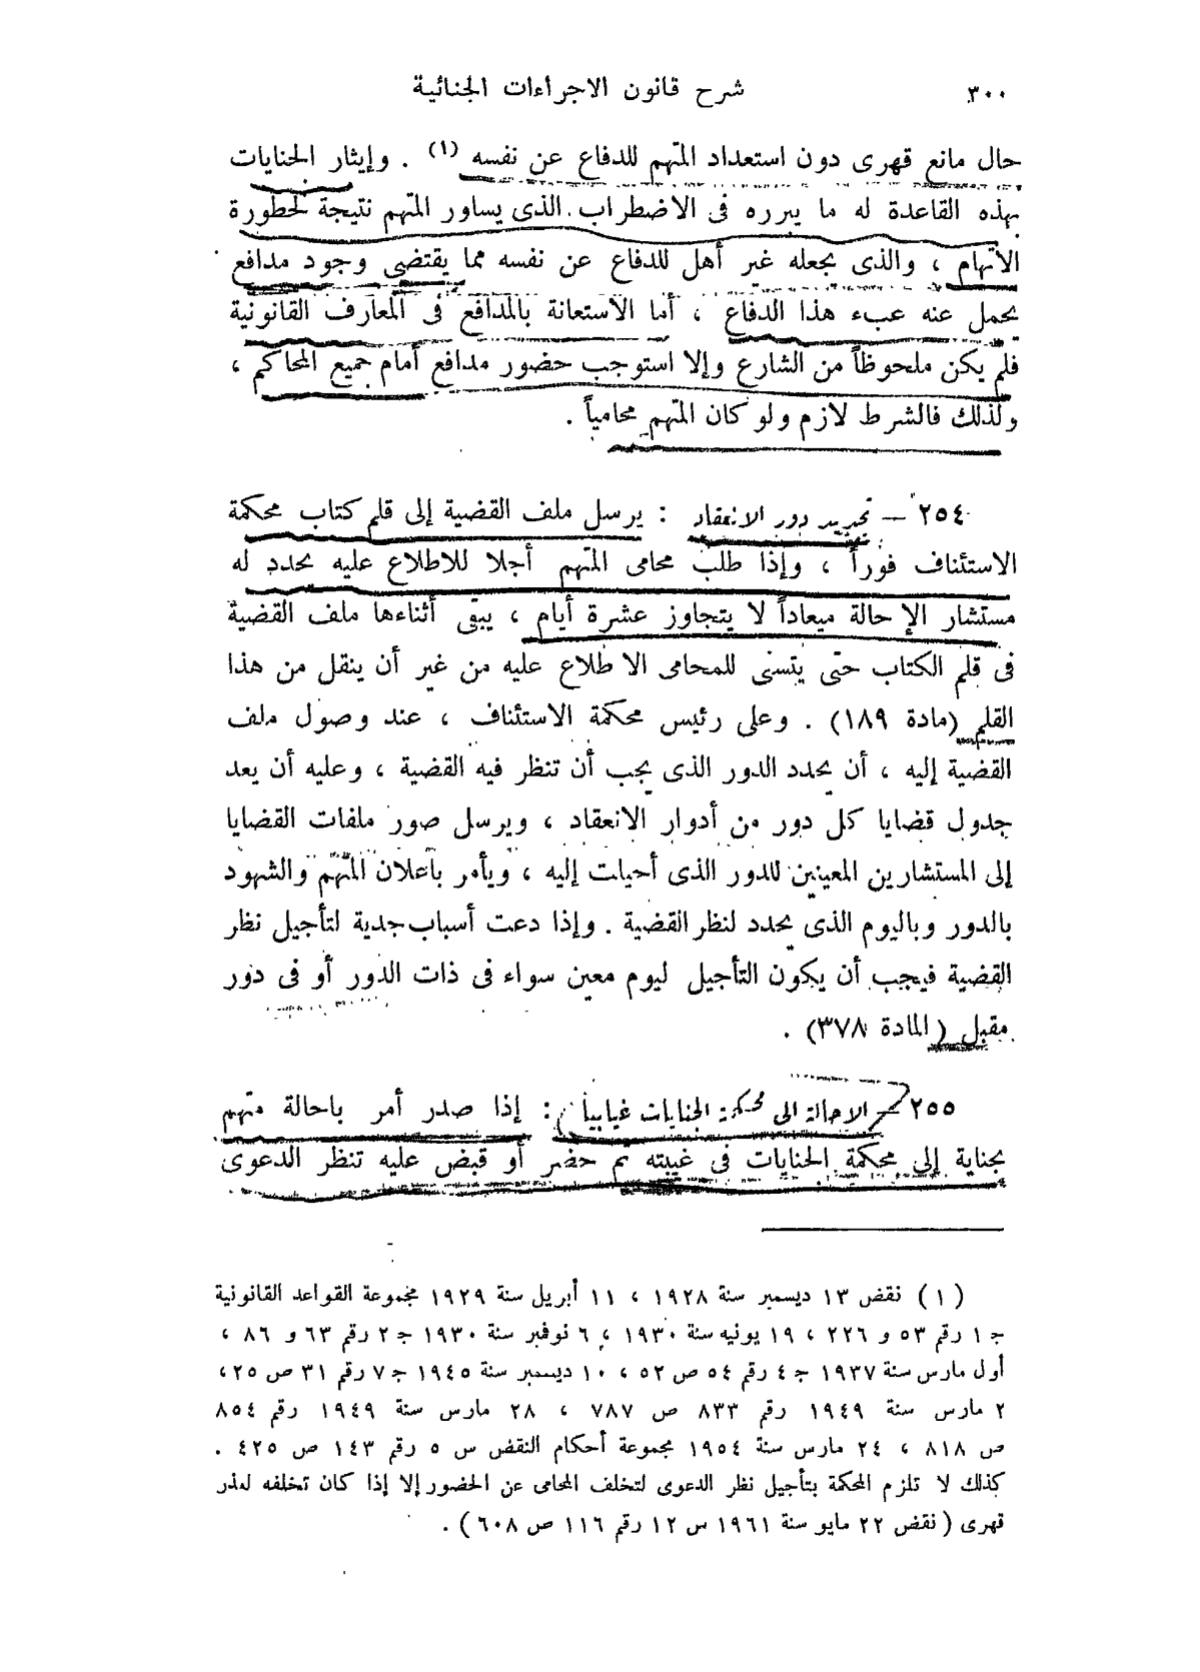 ٣٠٠ شرح قانون الاجراءات الجنائية
حال مانع قهرى دون استعداد المتهم للدفاع عن نفسه (١) . وإيثار الجنايات
بهذه القاعدة له ما يبرره فى الاضطراب الذى يساور المتهم نتيجة لخطورة
الاتهام ، والذى يجعله غير أهل للدفاع عن نفسه مما يقتضى وجود مدافع
يحمل عنه عبء هذا الدفاع ، أما الاستعانة بالمدافع فى المعارف القانونية
فلم يكن ملحوظاً من الشارع وإلا استوجب حضور مدافع أمام جميع المحاكم ،
ولذلك فالشرط لازم ولو كان المتهم محامياً .
٢٥٤ — تحديد دور الانعقاد : يرسل ملف القضية إلى قلم كتاب محكمة
الاستئناف فوراً ، وإذا طلب محامى المتهم أجلا للاطلاع عليه يحدد له
مستشار الإحالة ميعاداً لا يتجاوز عشرة أيام ، يبقى أثناءها ملف القضية
فى قلم الكتاب حتى يتسنى للمحامى الاطلاع عليه من غير أن ينقل من هذا
القلم (مادة ١٨٩) . وعلى رئيس محكمة الاستئناف ، عند وصول ملف
القضية إليه ، أن يحدد الدور الذى يجب أن تنظر فيه القضية ، وعليه أن يعد
جدول قضايا كل دور من أدوار الانعقاد ، ويرسل صور ملفات القضايا
إلى المستشارين المعينين للدور الذى أحيلت إليه ، ويأمر بأعلان المتهم والشهود
بالدور وباليوم الذى يحدد لنظر القضية . وإذا دعت أسباب جدية لتأجيل نظر
القضية فيجب أن يكون التأجيل ليوم معين سواء فى ذات الدور أو فى دور
مقبل (المادة ٣٧٨) .
٢٥٥ — الاحالة الى محكمة الجنايات غيابيا : إذا صدر أمر باحالة متهم
بجناية إلى محكمة الجنايات فى غيبته ثم حضر أو قبض عليه تنظر الدعوى
(١) نقض ١٣ ديسمبر سنة ١٩٢٨ ، ١١ أبريل سنة ١٩٢٩ مجموعة القواعد القانونية
ج ١ رقم ٥٣ و ٢٢٦ ، ١٩ يونيه سنة ١٩٣٠ ، ٦ نوفمبر سنة ١٩٣٠ ج ٢ رقم ٦٣ و ٨٦ ،
أول مارس سنة ١٩٣٧ ج ٤ رقم ٥٤ ص ٥٢ ، ١٠ ديسمبر سنة ١٩٤٥ ج ٧ رقم ٣١ ص ٢٥ ،
٢ مارس سنة ١٩٤٩ رقم ٨٣٣ ص ٧٨٧ ، ٢٨ مارس سنة ١٩٤٩ رقم ٨٥٤
ص ٨١٨ ، ٢٤ مارس سنة ١٩٥٤ مجموعة أحكام النقض س ٥ رقم ١٤٣ ص ٤٢٥ .
كذلك لا تلزم المحكمة بتأجيل نظر الدعوى لتخلف المحامى عن الحضور إلا إذا كان تخلفه لعذر
قهرى ( نقض ٢٢ مايو سنة ١٩٦١ س ١٢ رقم ١١٦ ص ٦٠٨ ) .